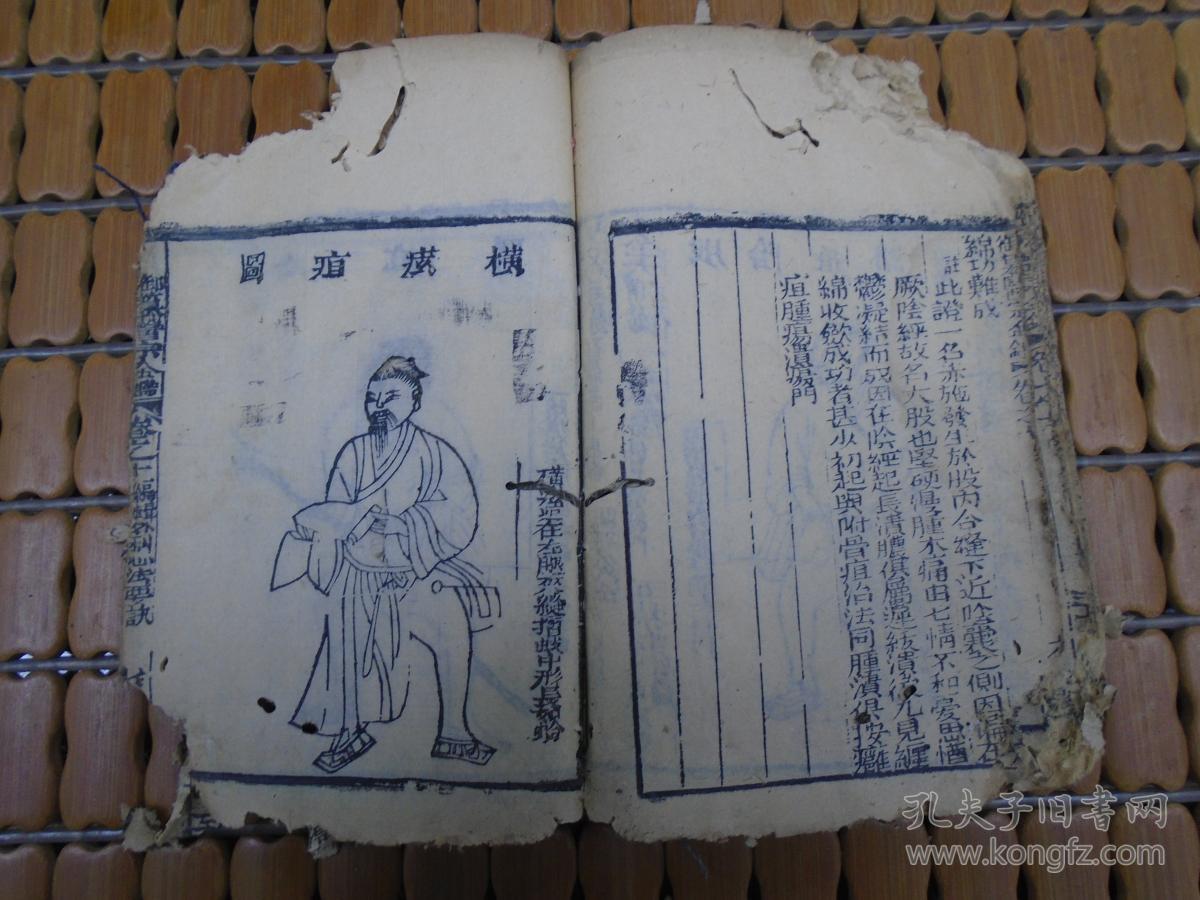 綿功難成
註此證一名赤施發生於股內合縫下近陰囊之側因偏在
厥陰經故名大股也堅硬漫腫木痛由七情不和憂思
鬱凝結而成因在陰經起長潰膿俱屬遲緩潰後尤見纏
綿收斂成功者甚少初起與附骨疽治法同腫潰俱按癰
疽腫瘍潰瘍門
橫痃疽圖
橫痃在左腿合縫摺紋中形長如蛤
御纂醫宗金鑑 卷之 十 編輯外科心法要訣
孔夫子旧书网
www.kongfz.com